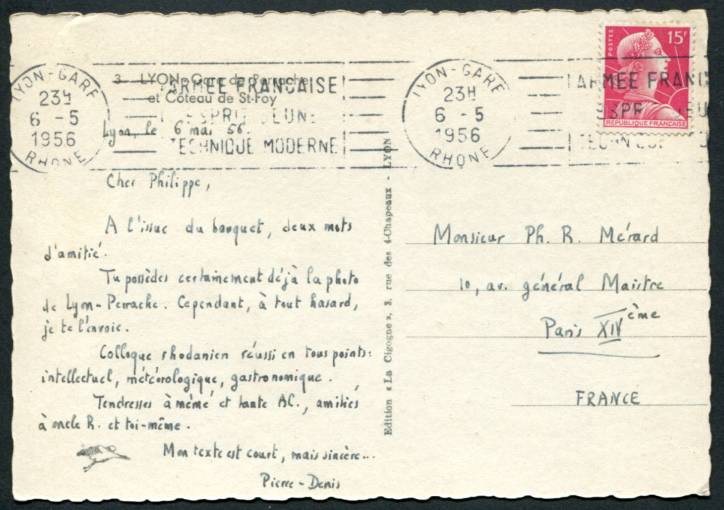 3 LYON - Gare de Perrache
et Côteau de St-Foy
Lyon, le 6 mai 56.
Cher Philippe,
A l'issue du banquet, deux mots
d'amitié.
Tu possèdes certainement déjà la photo
de Lyon-Perrache. Cependant, à tout hasard,
je te l'envoie.
Colloque rhodanien réussi en tous points:
intellectuel, météorologique, gastronomique.
Tendresses à mémé et tante AC., amitiés
à oncle R. et toi-même.
Mon texte est court, mais sincère...
Pierre-Denis
Edition « La Cigogne », 3, rue des 4-Chapeaux - LYON
LYON-GARE
23H
6 - 5
1956
RHONE
ARMÉE FRANCAISE
ESPRIT JEUNE
TECHNIQUE MODERNE
LYON-GARE
23H
6 - 5
1956
RHONE
ARMÉE FRANC
SPR
TECHN
POSTES
15F
REPUBLIQUE FRANÇAISE
Monsieur Ph. R. Mérard
10, av. général Maistre
Paris XIVème
FRANCE